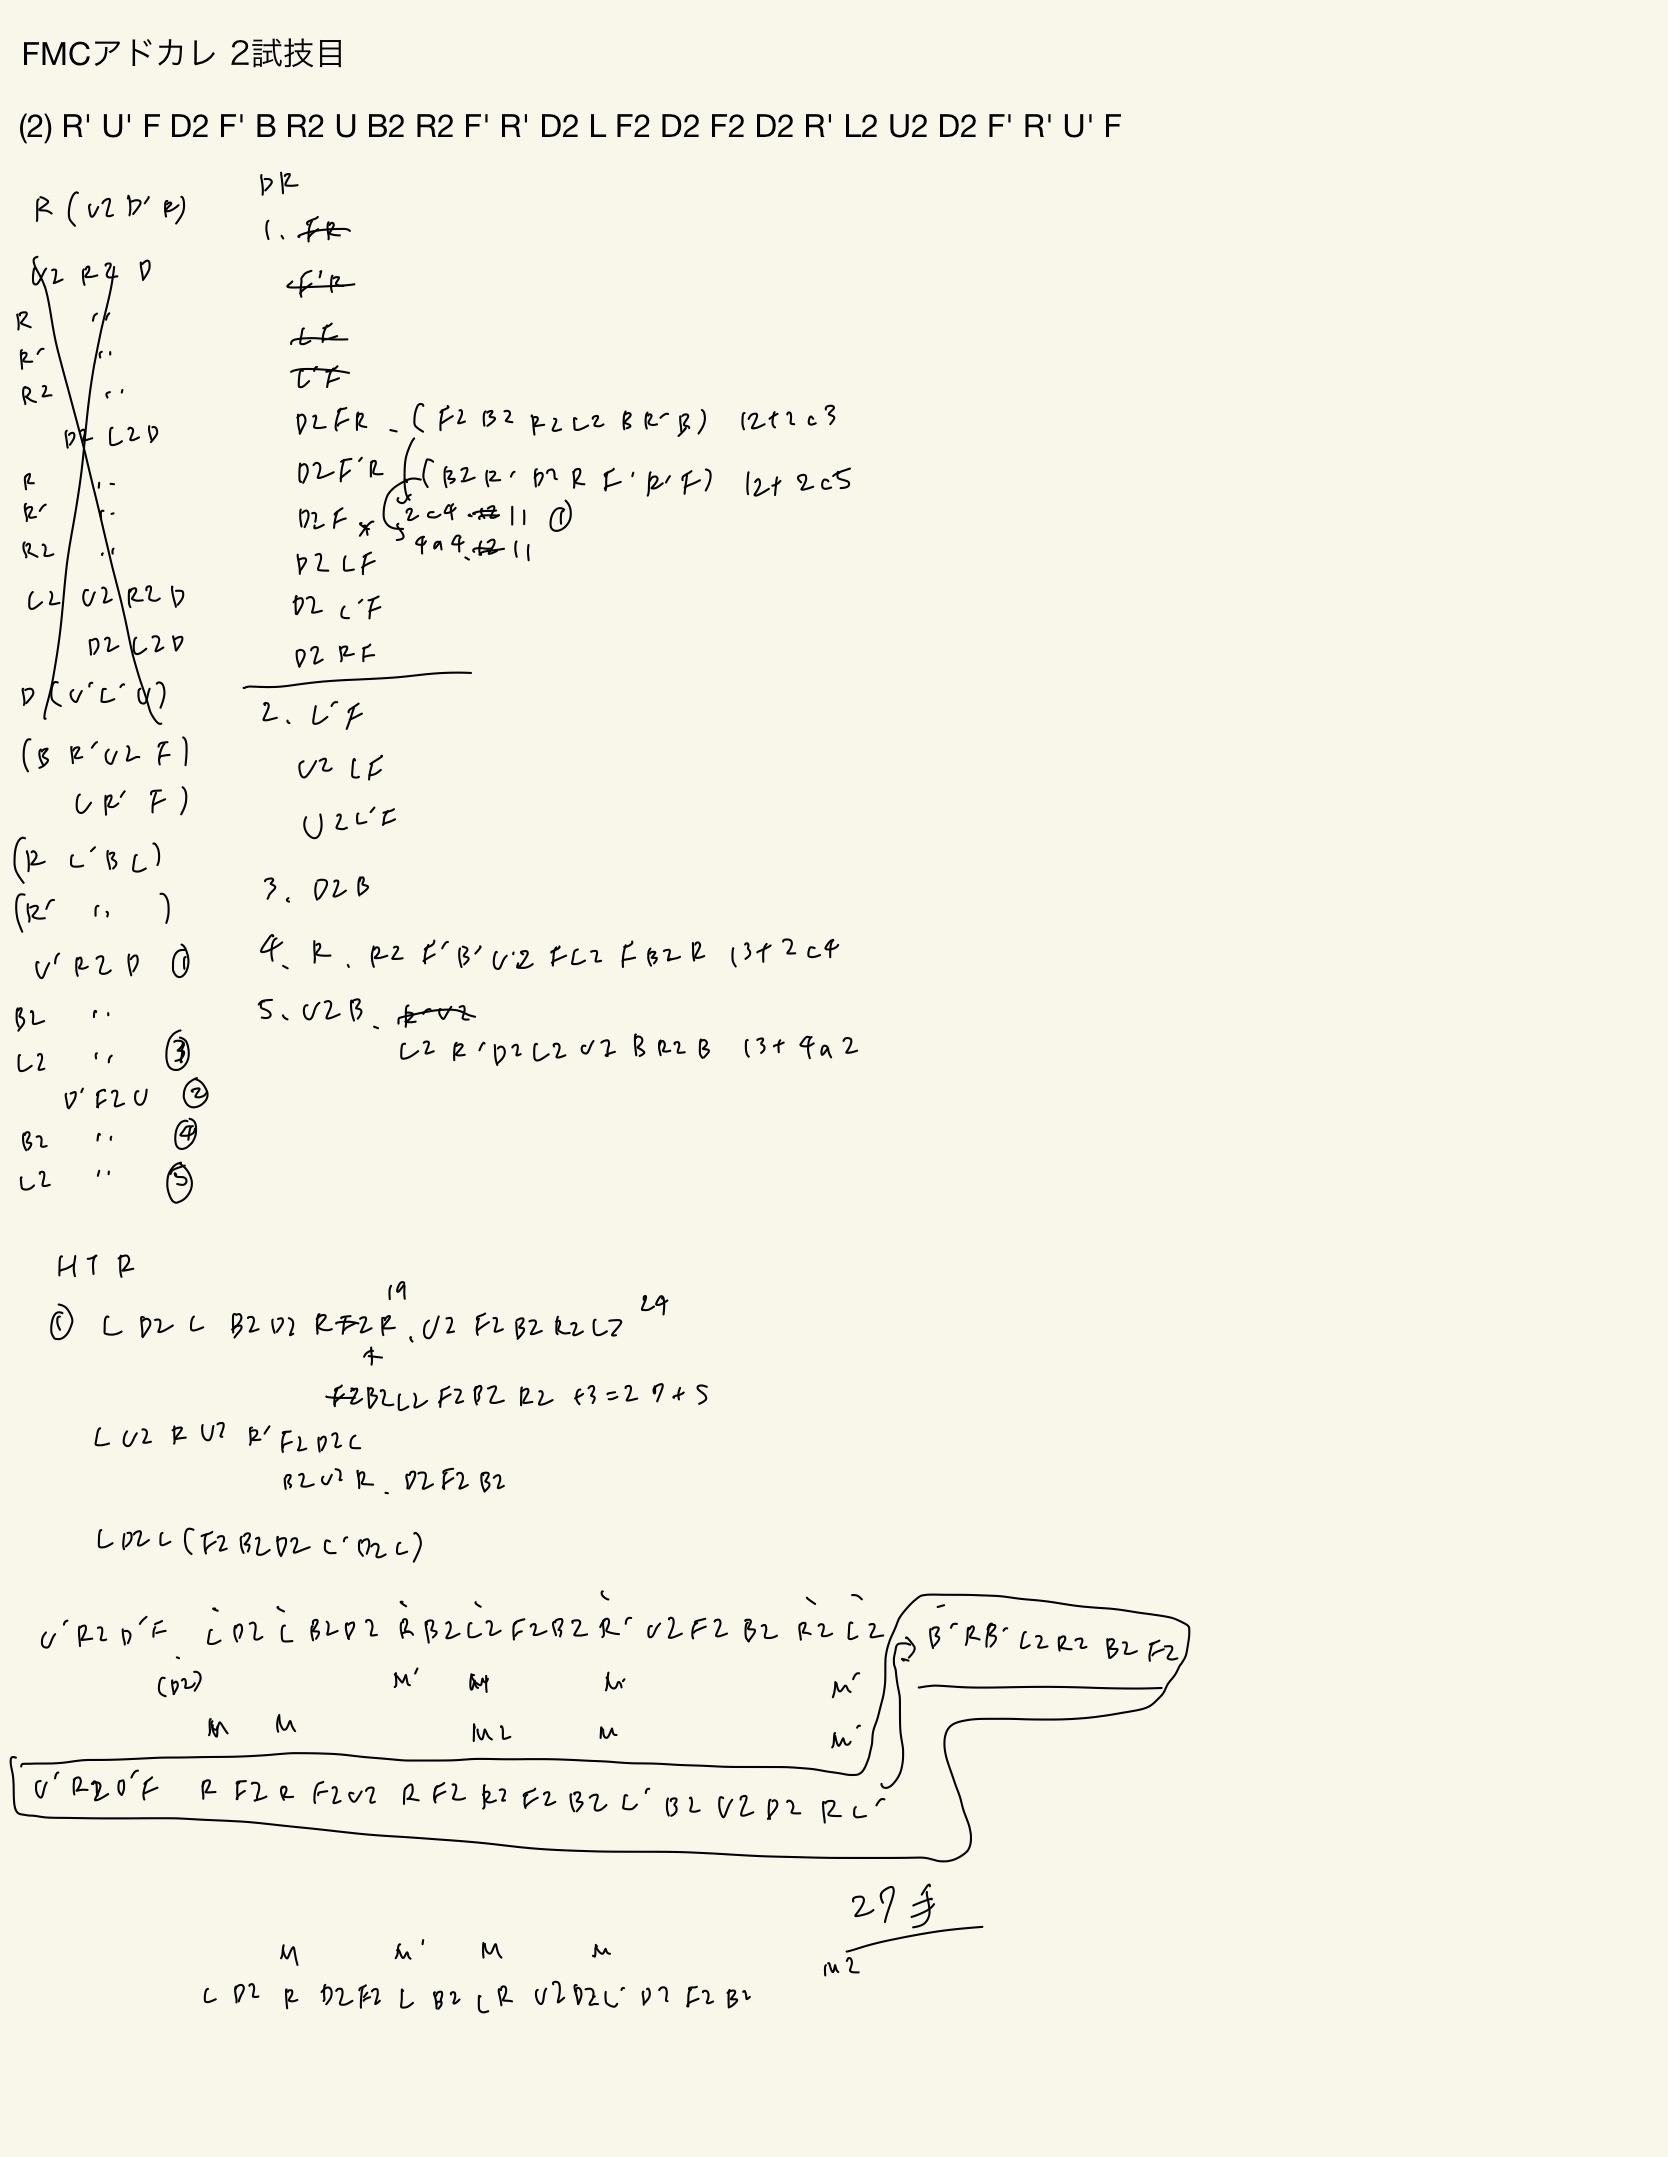 FMCアドカレ 2試技目
(2) R' U' F D2 F' B R2 U B2 R2 F' R' D2 L F2 D2 F2 D2 R' L2 U2 D2 F' R' U' F
R (U2 D' R)
R2 D
R 〃
R' 〃
R2 〃
D2 L2 D
R 〃
R' 〃
R2 〃
L2 U2 R2 D
D2 L2 D
D (U' L' U)
(B R' U2 F)
U R' F)
(R L' B L)
(R' 〃 )
U' R2 D ①
B2 〃
L2 〃 ③
D' F2 U ②
B2 〃 ④
L2 〃 ⑤
DR
1. FR
F'R
LF
L'F
D2 F R . (F2 B2 R2 L2 B R' B) 12+2c3
D2 F' R (B2 R' D2 R F' R' F) 12+2c5
D2 F * 2c4 12 11 ①
4a4. 12 11
D2 L F
D2 L' F
D2 R F
2. L' F
U2 L F
U2 L' F
3. D2 B
4. R . R2 F' B' U2 F L2 F B2 R 13+2c4
5. U2 B . R' U2
L2 R' D2 L2 U2 B R2 B 13+4a2
HTR
19
① L D2 L B2 D2 R F2 R . U2 F2 B2 R2 L2 24
F2 B2 L2 F2 B2 R2 +3=27+5
L U2 R U2 R' F2 D2 L
B2 U2 R . D2 F2 B2
L D2 L (F2 B2 D2 L' D2 L)
U' R2 D' F L D2 L B2 D2 R B2 L2 F2 B2 R' U2 F2 B2 R2 L2 B' R B' L2 R2 B2 F2
(D2) M' M M'
M M M2 M M'
U' R2 D' F R F2 R F2 U2 R F2 R2 F2 B2 L' B2 U2 D2 R L'
27手
M M' M M M2
L D2 R D2 F2 L B2 L R U2 D2 L' D2 F2 B2